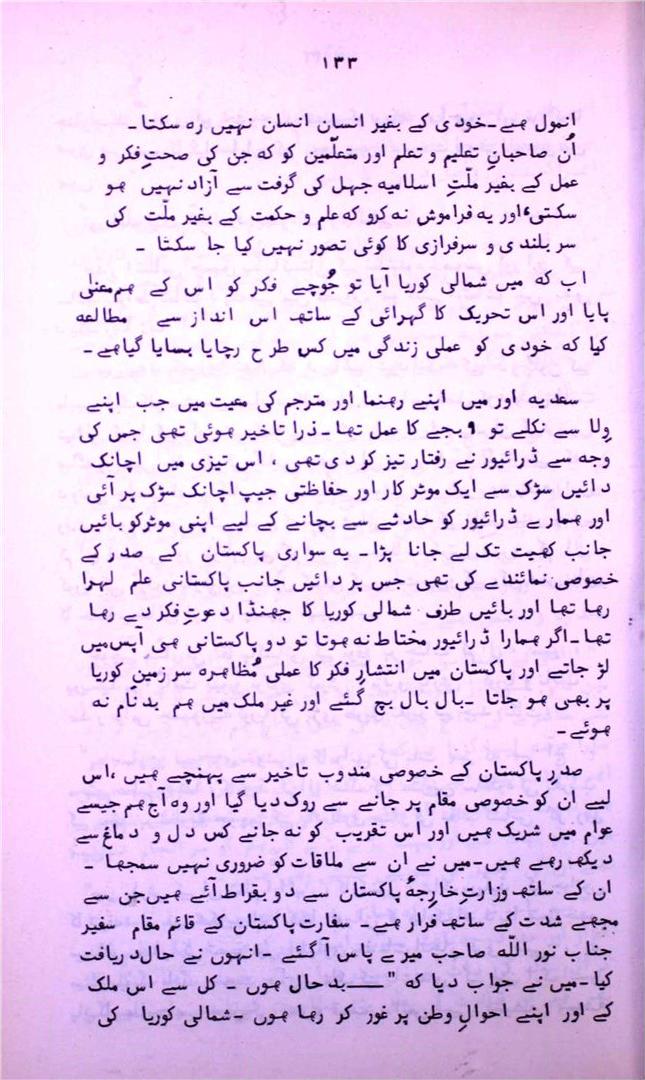 ۱۳۳
انمول ھے۔خودی کے بغیر انسان انسان نہیں رہ سکتا۔
اُن صاحبانِ تعلیم و تعلم اور متعلّمین کو کہ جن کی صحتِ فکر و
عمل کے بغیر ملّتِ اسلامیہ جہل کی گرفت سے آزاد نہیں ھو
سکتی، اور یہ فراموش نہ کرو کہ علم و حکمت کے بغیر ملّت کی
سربلندی و سرفرازی کا کوئی تصور نہیں کیا جا سکتا ۔
اب کہ میں شمالی کوریا آیا تو جُوچے فکر کو اس کے ھم معنی
پایا اور اس تحریک کا گہرائی کے ساتھ اس انداز سے مطالعہ
کیا کہ خودی کو عملی زندگی میں کس طرح رچایا بسایا گیا ھے۔
سعدیہ اور میں اپنے رھنما اور مترجم کی معیت میں جب اپنے
وِلا سے نکلے تو ۹ بجے کا عمل تھا۔ ذرا تاخیر ھوئی تھی جس کی
وجہ سے ڈرائیور نے رفتار تیز کردی تھی ، اس تیزی میں اچانک
دائیں سڑک سے ایک موٹر کار اور حفاظتی جیپ اچانک سڑک پر آئی
اور ھمارے ڈرائیور کو حادثے سے بچانے کے لیے اپنی موٹرکو بائیں
جانب کھیت تک لے جانا پڑا۔ یہ سواری پاکستان کے صدر کے
خصوصی نمائندے کی تھی جس پر دائیں جانب پاکستانی علم لہرا
رھا تھا اور بائیں طرف شمالی کوریا کا جھنڈا دعوتِ فکر دے رھا
تھا۔اگر ھمارا ڈرائیور مختاط نہ ھوتا تو دو پاکستانی ھی آپس میں
لڑ جاتے اور پاکستان میں انتشارِ فکر کا عملی مُظاھرہ سر زمینِ کوریا
پر بھی ھو جاتا ۔بال بال بچ گئے اور غیر ملک میں ھم بدنام نہ
ھوئے۔
صدرِ پاکستان کے خصوصی مندوب تاخیر سے پہنچے ھیں ،اس
لیے ان کو خصوصی مقام پر جانے سے روک دیا گیا اور وہ آج ھم جیسے
عوام میں شریک ھیں اور اس تقریب کو نہ جانے کس دل و دماغ سے
دیکھ رھے ھیں۔میں نے ان سے ملاقات کو ضروری نہیں سمجھا ۔
ان کے ساتھ وزارتِ خارجۂ پاکستان سے دو بقراط آئے ھیں جن سے
مجھے شدت کے ساتھ فرار ھے۔ سفارت پاکستان کے قائم مقام سفیر
جناب نور اللّٰہ صاحب میرے پاس آ گئے ۔انہوں نے حال دریافت
کیا۔میں نے جواب دیا کہ "——بدحال ھوں ۔ کل سے اس ملک
کے اور اپنے احوالِ وطن پر غور کر رھا ھوں ۔شمالی کوریا کی